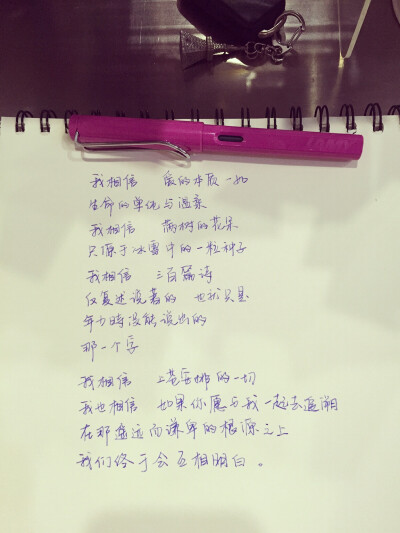 我相信 爱的本质一如
生命的单纯与温柔
我相信 满树的花朵
只源于冰雪中的一粒种子
我相信 三百篇诗
反复述说着的 也就只是
年少時没能说出的
那一个字
我相信 上苍安排的一切
我也相信 如果你愿与我一起去追溯
在那遥远而谦卑的根源之上
我们终于会互相明白。